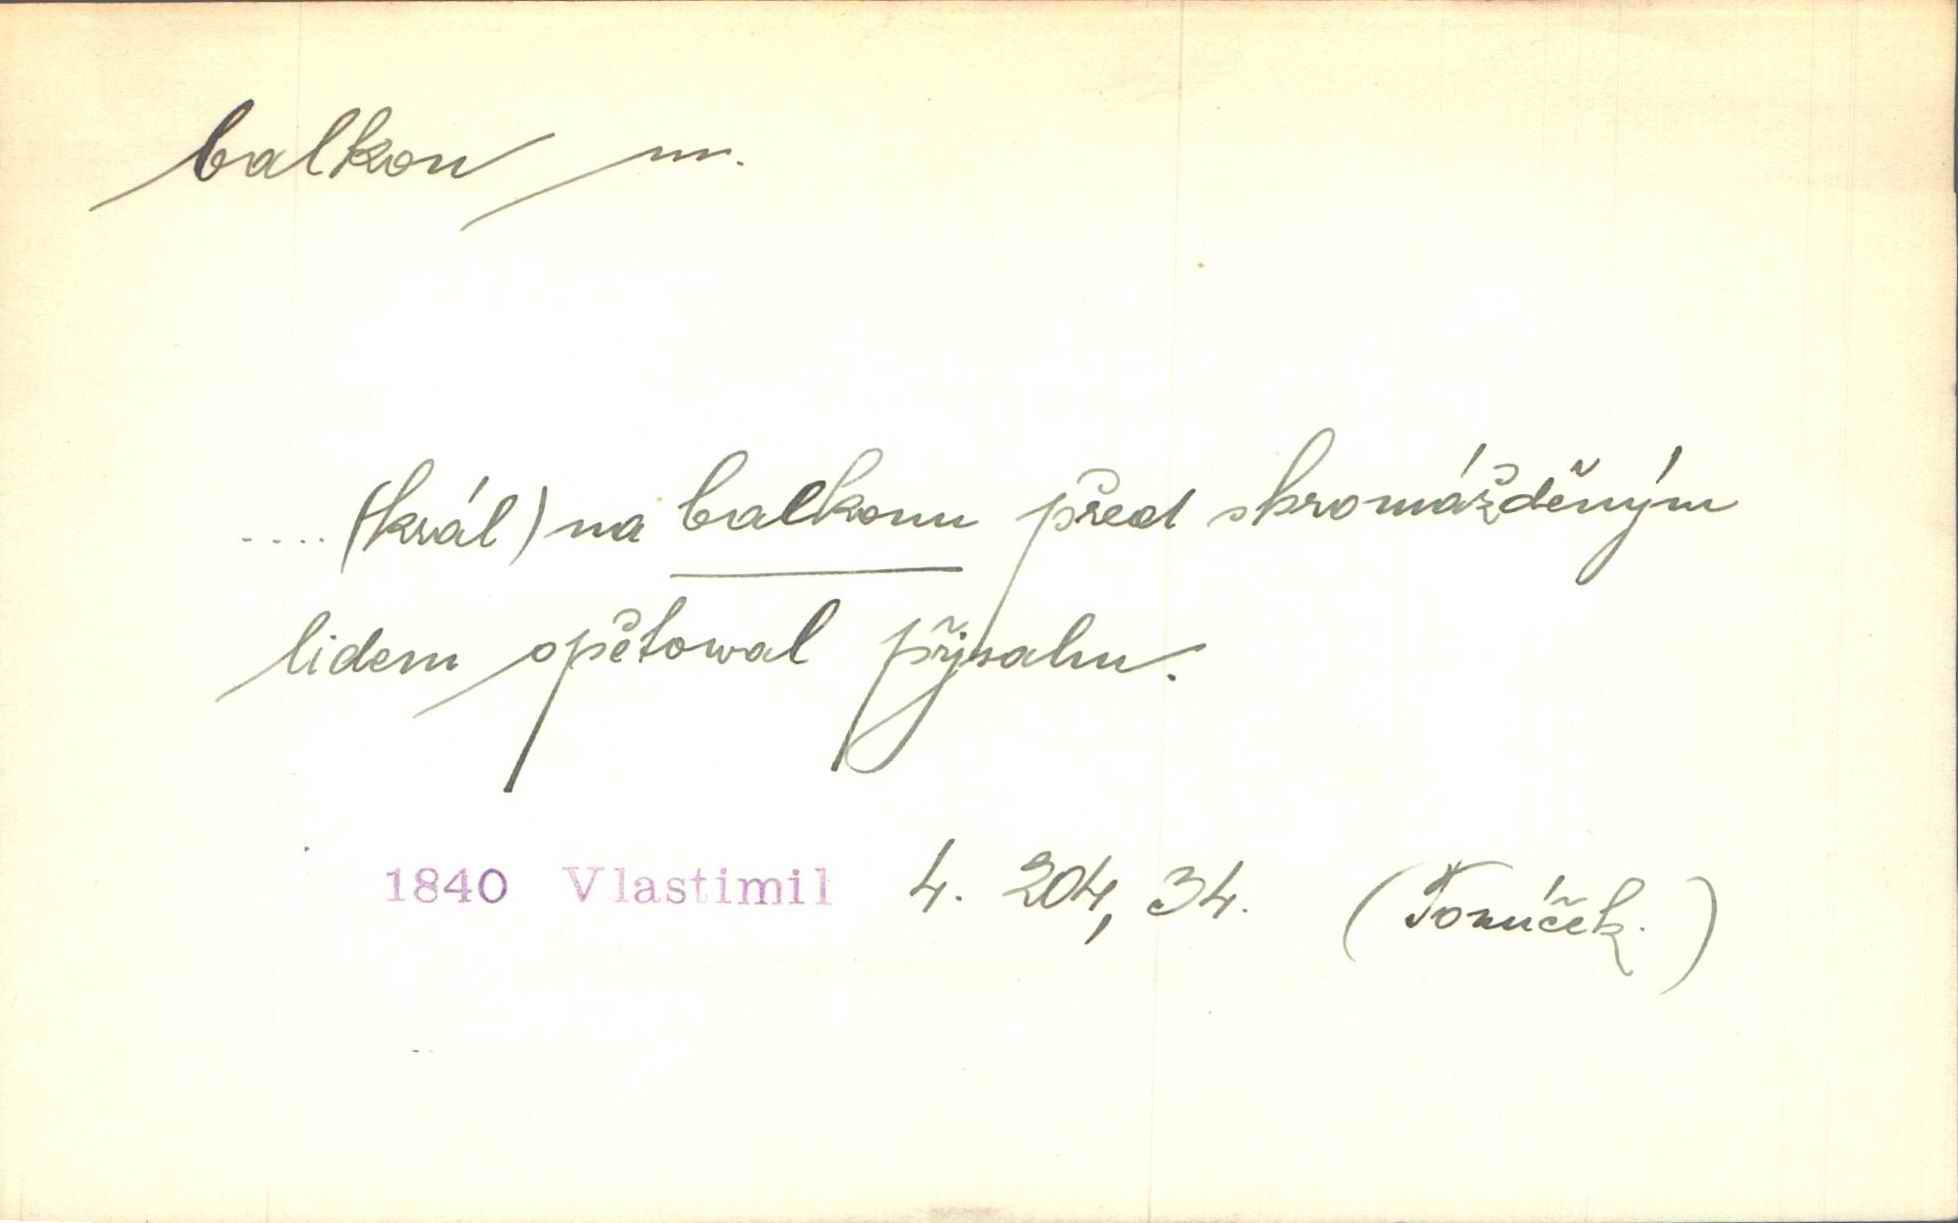 balkon m.
.... (král) na balkonu před skromážděným
lidem opětowal přjsahu.
1840 Vlastimil 4. 204, 34. (Tomíček.)